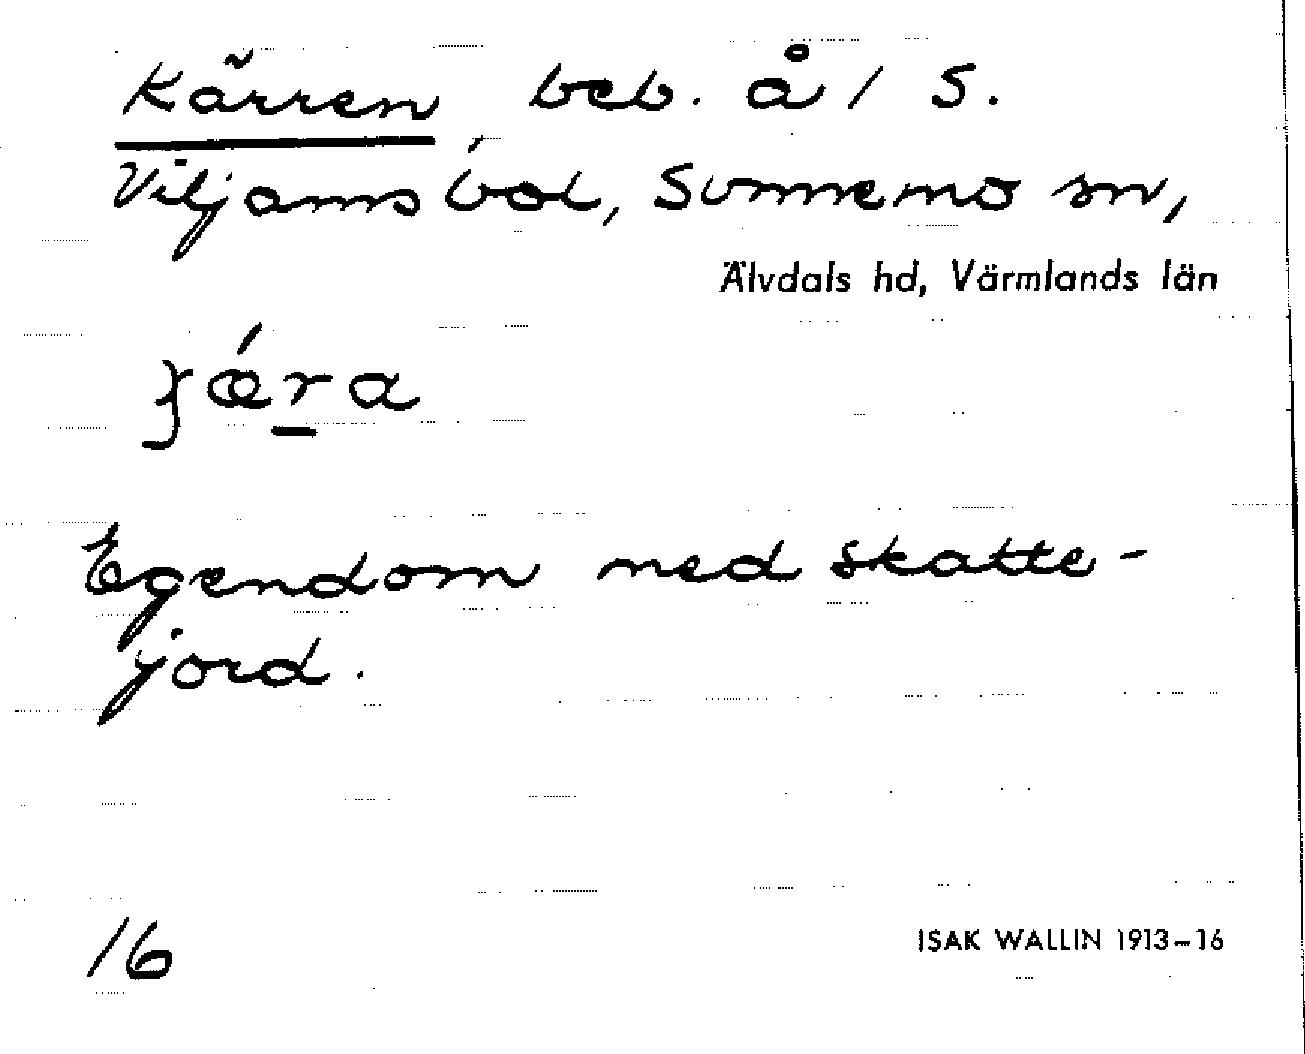 Kärren beb. å 1 S.
Viljamsbol, Sunnemo sn,
Älvdals hd, Värmlands län
Egendom med skatte-
jord.
16
ISAK WALLIN 1913-16